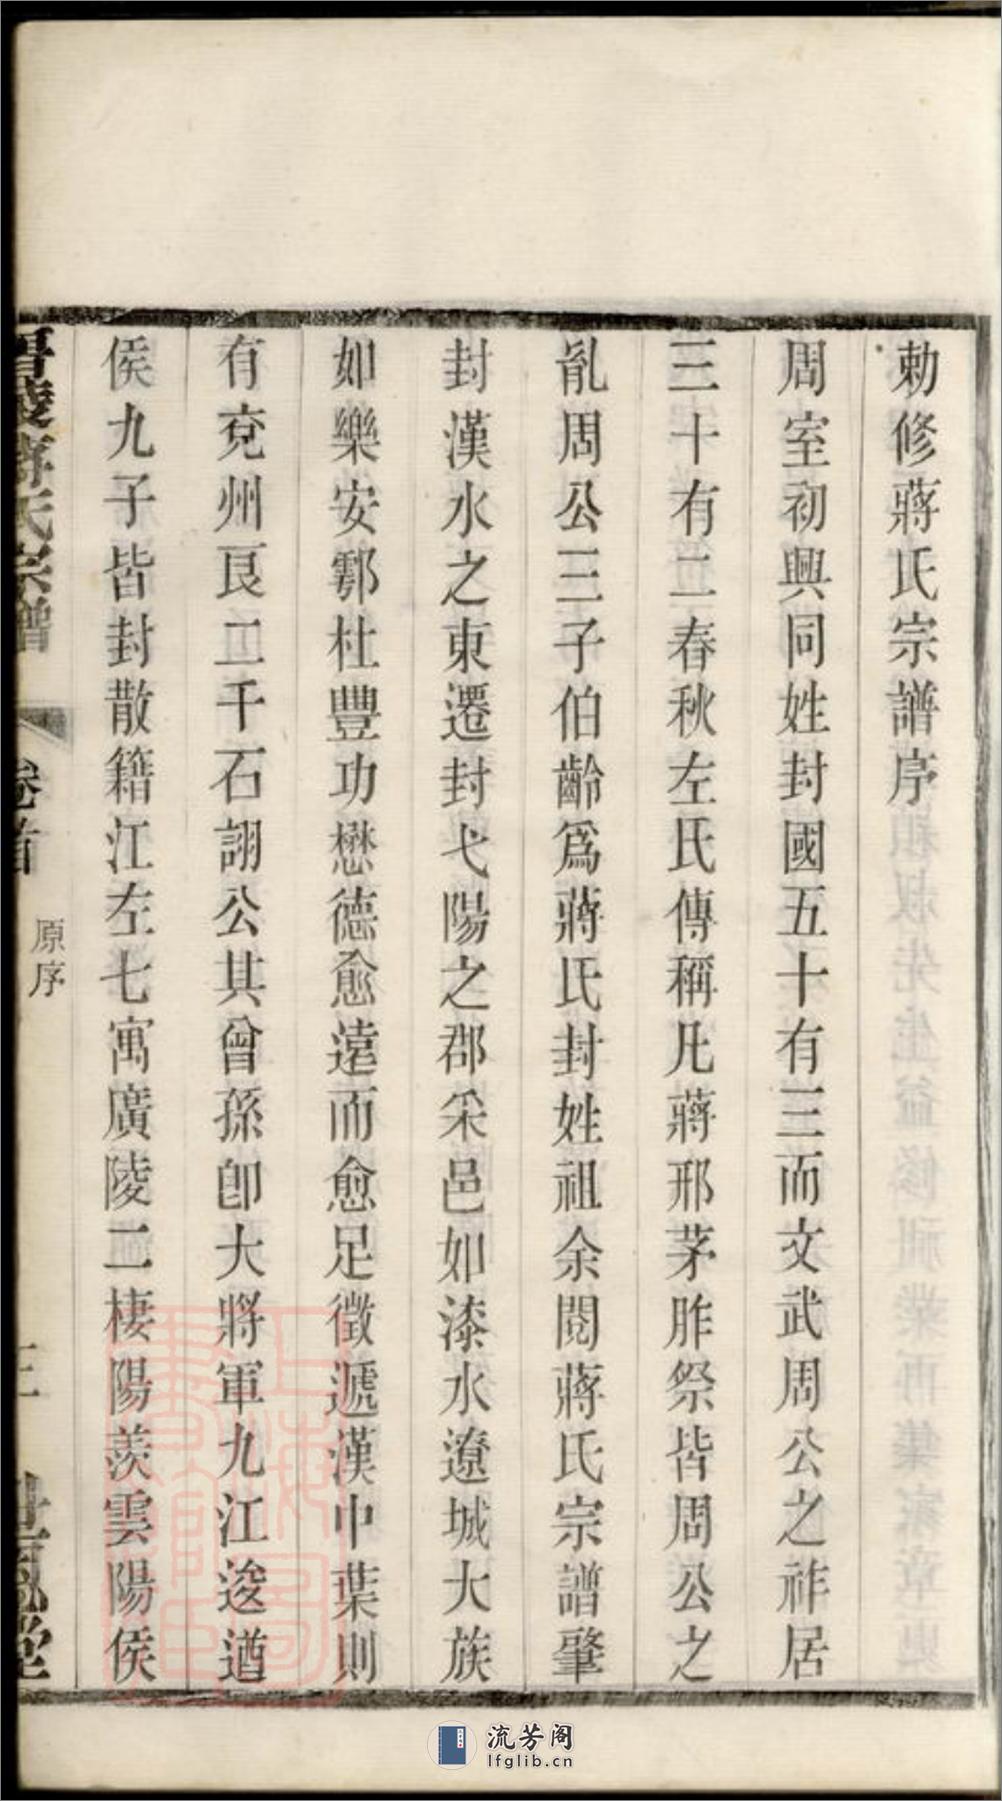 勅修蔣氏宗譜序
周室初興同姓封國五十有三而文武周公之祚居
三十有二春秋左氏傳稱凡蔣邢茅胙祭皆周公之
胤周公三子伯齡爲蔣氏封姓祖余閱蔣氏宗譜肇
封漢水之東遷封弋陽之郡采邑如漆水遼城大族
如樂安鄠杜豐功懋德愈遠而愈足徵遞漢中葉則
有兗州艮二千石詡公其曾孫卽大將軍九江逡遒
侯九子皆封散籍江左七寓廣陵二棲陽羨雲陽侯
晉陵蔣氏宗譜
卷首
原序
三
流芳阁
lfglib.cn